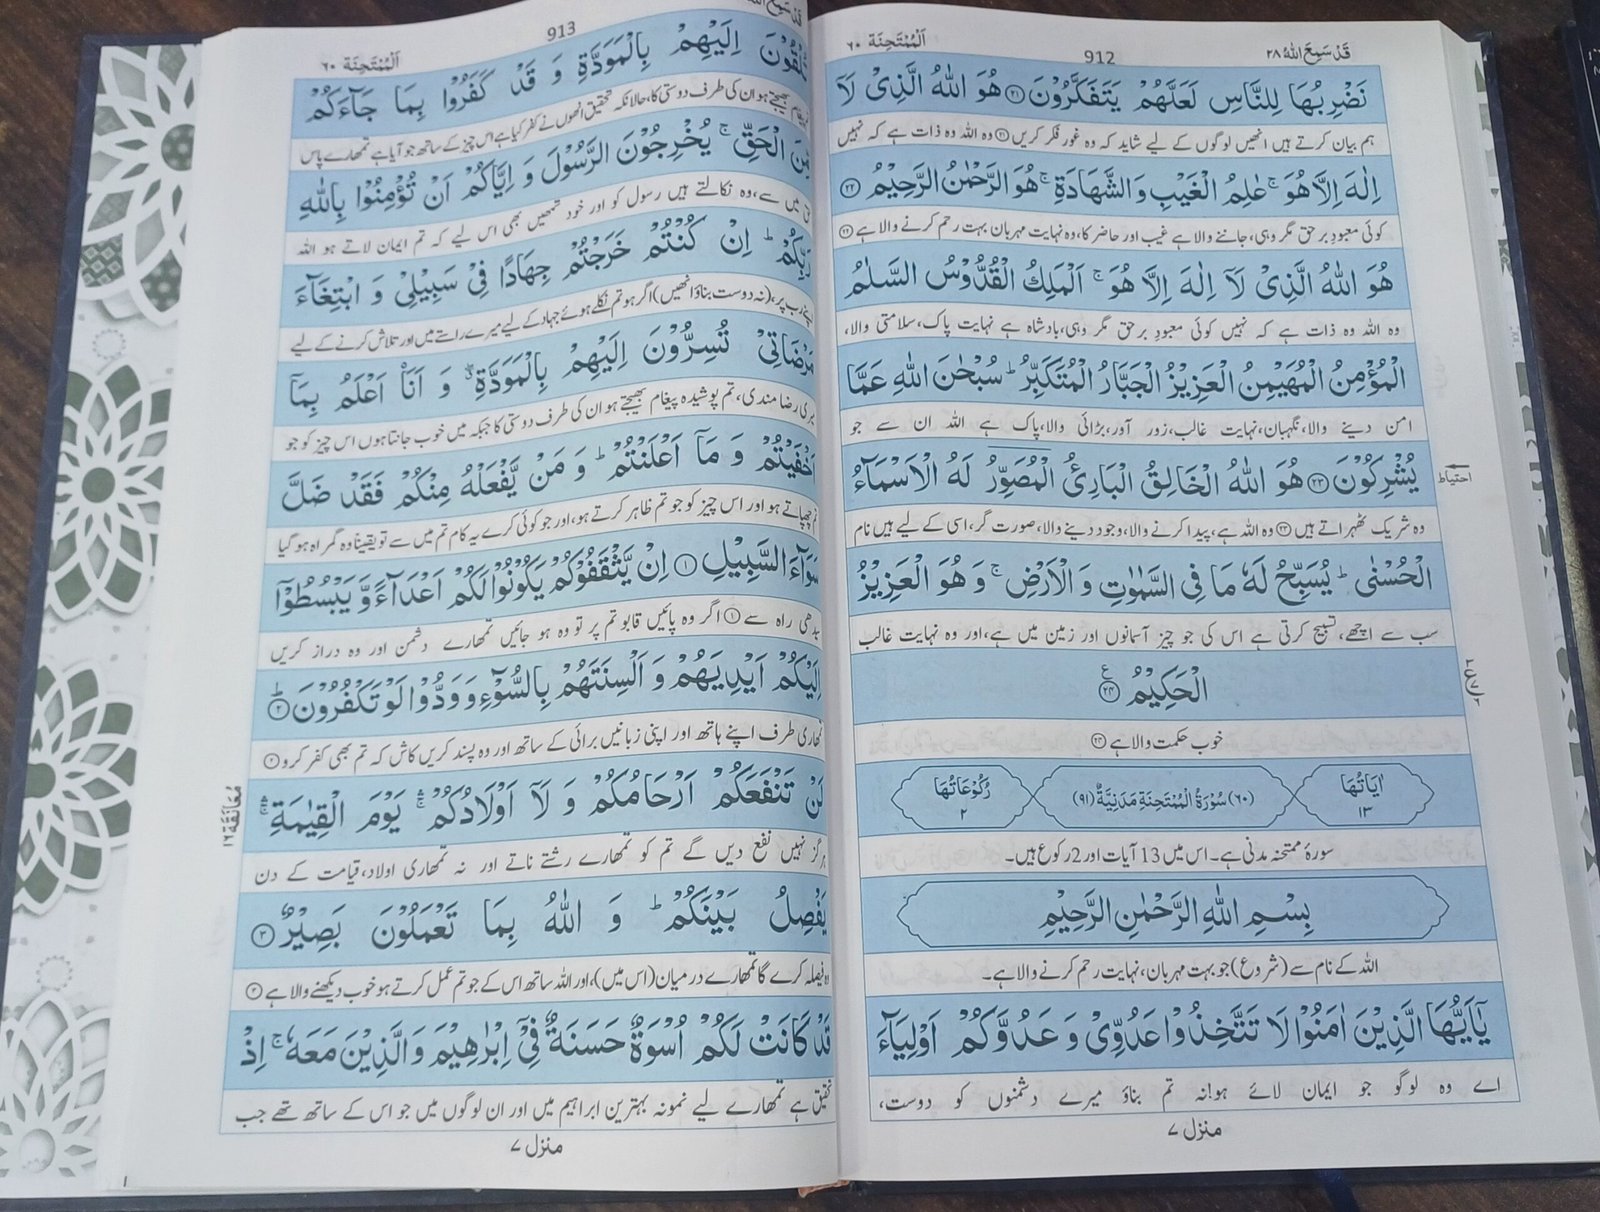 قَدْ سَمِعَ اللّٰهُ ٢٨
912
اَلْمُمْتَحِنَة ٦٠
نَضْرِبُهَا لِلنَّاسِ لَعَلَّهُمْ يَتَفَكَّرُوْنَ ﴿٢١﴾ هُوَ اللّٰهُ الَّذِىْ لَآ
ہم بیان کرتے ہیں انھیں لوگوں کے لیے شاید کہ وہ غور فکر کریں ﴿٢١﴾ وہ اللہ وہ ذات ہے کہ نہیں
اِلٰهَ اِلَّا هُوَ ۚ عٰلِمُ الْغَيْبِ وَالشَّهَادَةِ ۚ هُوَ الرَّحْمٰنُ الرَّحِيْمُ ﴿٢٢﴾
کوئی معبودِ برحق مگر وہی، جاننے والا ہے غیب اور حاضر کا، وہ نہایت مہربان بہت رحم کرنے والا ہے ﴿٢٢﴾
هُوَ اللّٰهُ الَّذِىْ لَآ اِلٰهَ اِلَّا هُوَ ۚ اَلْمَلِكُ الْقُدُّوْسُ السَّلٰمُ
وہ اللہ وہ ذات ہے کہ نہیں کوئی معبودِ برحق مگر وہی، بادشاہ ہے نہایت پاک، سلامتی والا،
الْمُؤْمِنُ الْمُهَيْمِنُ الْعَزِيْزُ الْجَبَّارُ الْمُتَكَبِّرُ ؕ سُبْحٰنَ اللّٰهِ عَمَّا
امن دینے والا، نگہبان، نہایت غالب، زور آور، بڑائی والا، پاک ہے اللہ ان سے جو
يُشْرِكُوْنَ ﴿٢٣﴾ هُوَ اللّٰهُ الْخَالِقُ الْبَارِئُ الْمُصَوِّرُ لَهُ الْاَسْمَآءُ
احتیاط
وہ شریک ٹھہراتے ہیں ﴿٢٣﴾ وہ اللہ ہے، پیدا کرنے والا، وجود دینے والا، صورت گر، اسی کے لیے ہیں نام
الْحُسْنٰى ؕ يُسَبِّحُ لَهٗ مَا فِى السَّمٰوٰتِ وَ الْاَرْضِ ۚ وَ هُوَ الْعَزِيْزُ
سب سے اچھے، تسبیح کرتی ہے اس کی جو چیز آسمانوں اور زمین میں ہے، اور وہ نہایت غالب
الْحَكِيْمُ ﴿٢٤﴾
خوب حکمت والا ہے ﴿٢٤﴾
اٰيَاتُهَا ١٣
(٦٠) سُوْرَةُ الْمُمْتَحِنَةِ مَدَنِيَّةٌ (٩١)
رُكُوْعَاتُهَا ٢
سورۂ ممتحنہ مدنی ہے۔ اس میں 13 آیات اور 2 رکوع ہیں۔
بِسْمِ اللّٰهِ الرَّحْمٰنِ الرَّحِيْمِ
اللہ کے نام سے (شروع) جو بہت مہربان، نہایت رحم کرنے والا ہے۔
يٰۤاَيُّهَا الَّذِيْنَ اٰمَنُوْا لَا تَتَّخِذُوْا عَدُوِّىْ وَ عَدُوَّكُمْ اَوْلِيَآءَ
اے وہ لوگو جو ایمان لائے ہو! نہ تم بناؤ میرے دشمنوں کو دوست،
منزل ٧
قَدْ سَمِعَ اللّٰهُ
913
اَلْمُمْتَحِنَة ٦٠
تُلْقُوْنَ اِلَيْهِمْ بِالْمَوَدَّةِ وَ قَدْ كَفَرُوْا بِمَا جَآءَكُمْ
بھیجتے ہو ان کی طرف دوستی کا، حالانکہ تحقیق انھوں نے کفر کیا ہے اس چیز کے ساتھ جو آیا ہے تمھارے پاس
مِّنَ الْحَقِّ ۚ يُخْرِجُوْنَ الرَّسُوْلَ وَ اِيَّاكُمْ اَنْ تُؤْمِنُوْا بِاللّٰهِ
میں سے، وہ نکالتے ہیں رسول کو اور خود تمھیں بھی اس لیے کہ تم ایمان لاتے ہو اللہ
رَبِّكُمْ ؕ اِنْ كُنْتُمْ خَرَجْتُمْ جِهَادًا فِىْ سَبِيْلِىْ وَ ابْتِغَآءَ
رب پر، (نہ دوست بناؤ انھیں) اگر ہو تم نکلے ہوئے جہاد کے لیے میرے راستے میں اور تلاش کرنے کے لیے
مَرْضَاتِىْ تُسِرُّوْنَ اِلَيْهِمْ بِالْمَوَدَّةِ ۖ وَ اَنَا۠ اَعْلَمُ بِمَآ
میری رضا مندی، تم پوشیدہ پیغام بھیجتے ہو ان کی طرف دوستی کا جبکہ میں خوب جانتا ہوں اس چیز کو جو
اَخْفَيْتُمْ وَ مَآ اَعْلَنْتُمْ ؕ وَ مَنْ يَّفْعَلْهُ مِنْكُمْ فَقَدْ ضَلَّ
تم چھپاتے ہو اور اس چیز کو جو تم ظاہر کرتے ہو، اور جو کوئی کرے یہ کام تم میں سے تو یقیناً وہ گمراہ ہو گیا
سَوَآءَ السَّبِيْلِ ﴿١﴾ اِنْ يَّثْقَفُوْكُمْ يَكُوْنُوْا لَكُمْ اَعْدَآءً وَّ يَبْسُطُوْٓا
سیدھی راہ سے ﴿١﴾ اگر وہ پائیں قابو تم پر تو وہ ہو جائیں تمھارے دشمن اور وہ دراز کریں
اِلَيْكُمْ اَيْدِيَهُمْ وَ اَلْسِنَتَهُمْ بِالسُّوْٓءِ وَ وَدُّوْا لَوْ تَكْفُرُوْنَ ﴿٢﴾ؕ
تمھاری طرف اپنے ہاتھ اور اپنی زبانیں برائی کے ساتھ اور وہ پسند کریں کاش کہ تم بھی کفر کرو ﴿٢﴾
لَنْ تَنْفَعَكُمْ اَرْحَامُكُمْ وَ لَآ اَوْلَادُكُمْ ۛ يَوْمَ الْقِيٰمَةِ ۛ
مُعَانَقَة ١٦
ہرگز نہیں نفع دیں گے تم کو تمھارے رشتے ناتے اور نہ تمھاری اولاد، قیامت کے دن
يَفْصِلُ بَيْنَكُمْ ؕ وَ اللّٰهُ بِمَا تَعْمَلُوْنَ بَصِيْرٌ ﴿٣﴾
وہ فیصلہ کرے گا تمھارے درمیان (اس میں)، اور اللہ ساتھ اس کے جو تم عمل کرتے ہو خوب دیکھنے والا ہے ﴿٣﴾
قَدْ كَانَتْ لَكُمْ اُسْوَةٌ حَسَنَةٌ فِىْٓ اِبْرٰهِيْمَ وَ الَّذِيْنَ مَعَهٗ ۚ اِذْ
تحقیق ہے تمھارے لیے نمونہ بہترین ابراہیم میں اور ان لوگوں میں جو اس کے ساتھ تھے جب
منزل ٧